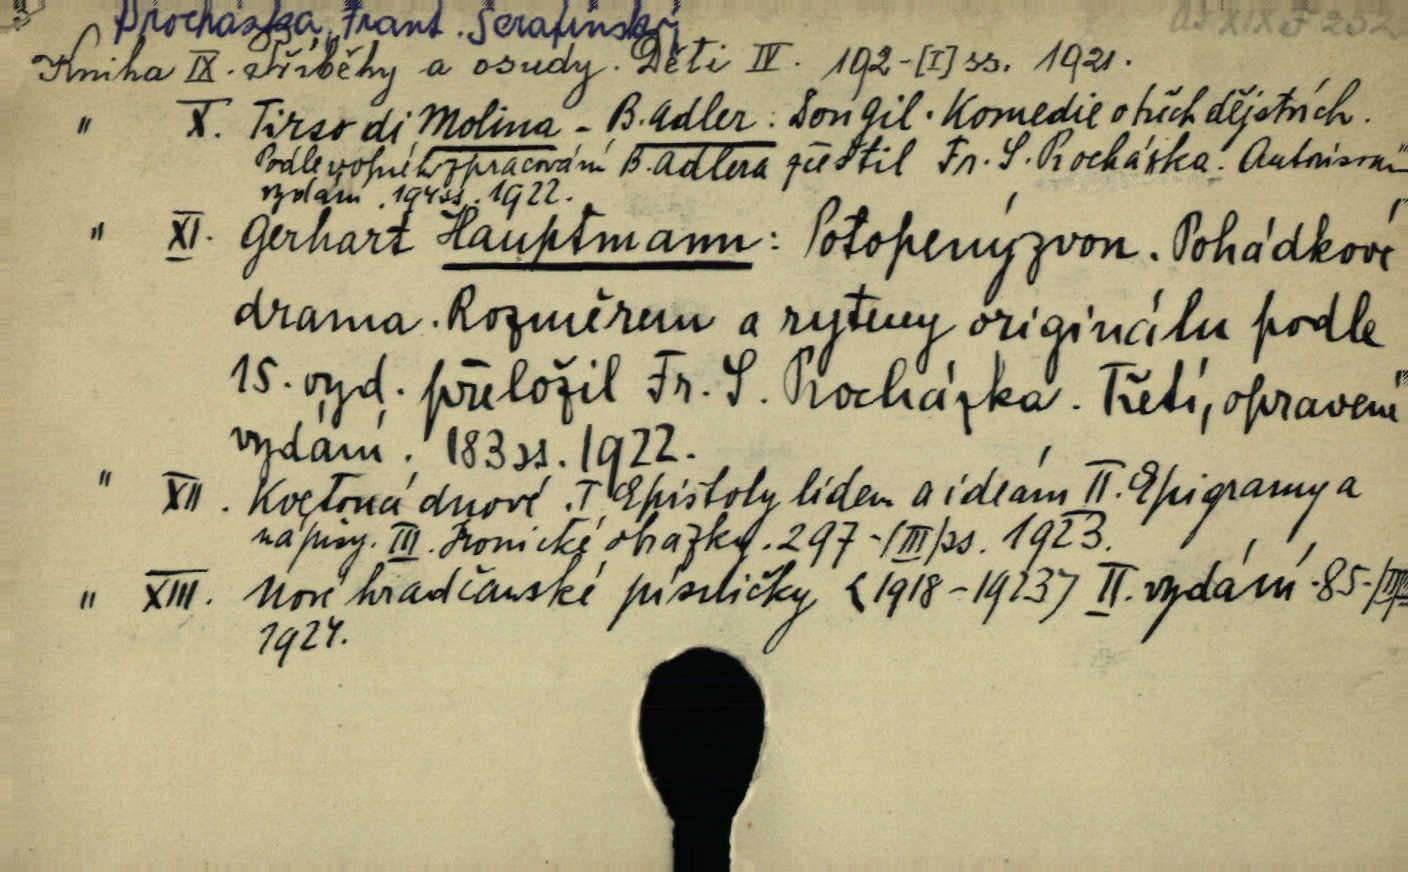 Procházka, Frant. Serafínský
Kniha IX. Příběhy a osudy. Děti IV. 192-[I] ss. 1921.
" X. Tirso di Molina - B. Adler: Don Gil. Komedie o třech dějstvích.
Podle volného zpracování B. Adlera zčeštil Fr. S. Procházka. Autorisované
vydání. 194 ss. 1922.
" XI. Gerhart Hauptmann: Potopený zvon. Pohádkové
drama. Rozměrem a rytmy originálu podle
15. vyd. přeložil Fr. S. Procházka. Třetí, opravené
vydání. 183 ss. 1922.
" XII. Květoná dnové. I Epištoly lidem a ideám II. Epigramy a
nápisy. III. Ironické obrázky. 297-[III] ss. 1923.
" XIII. Nové hradčanské písničky (1918-1923) II. vydání. 85-[III]
1924.